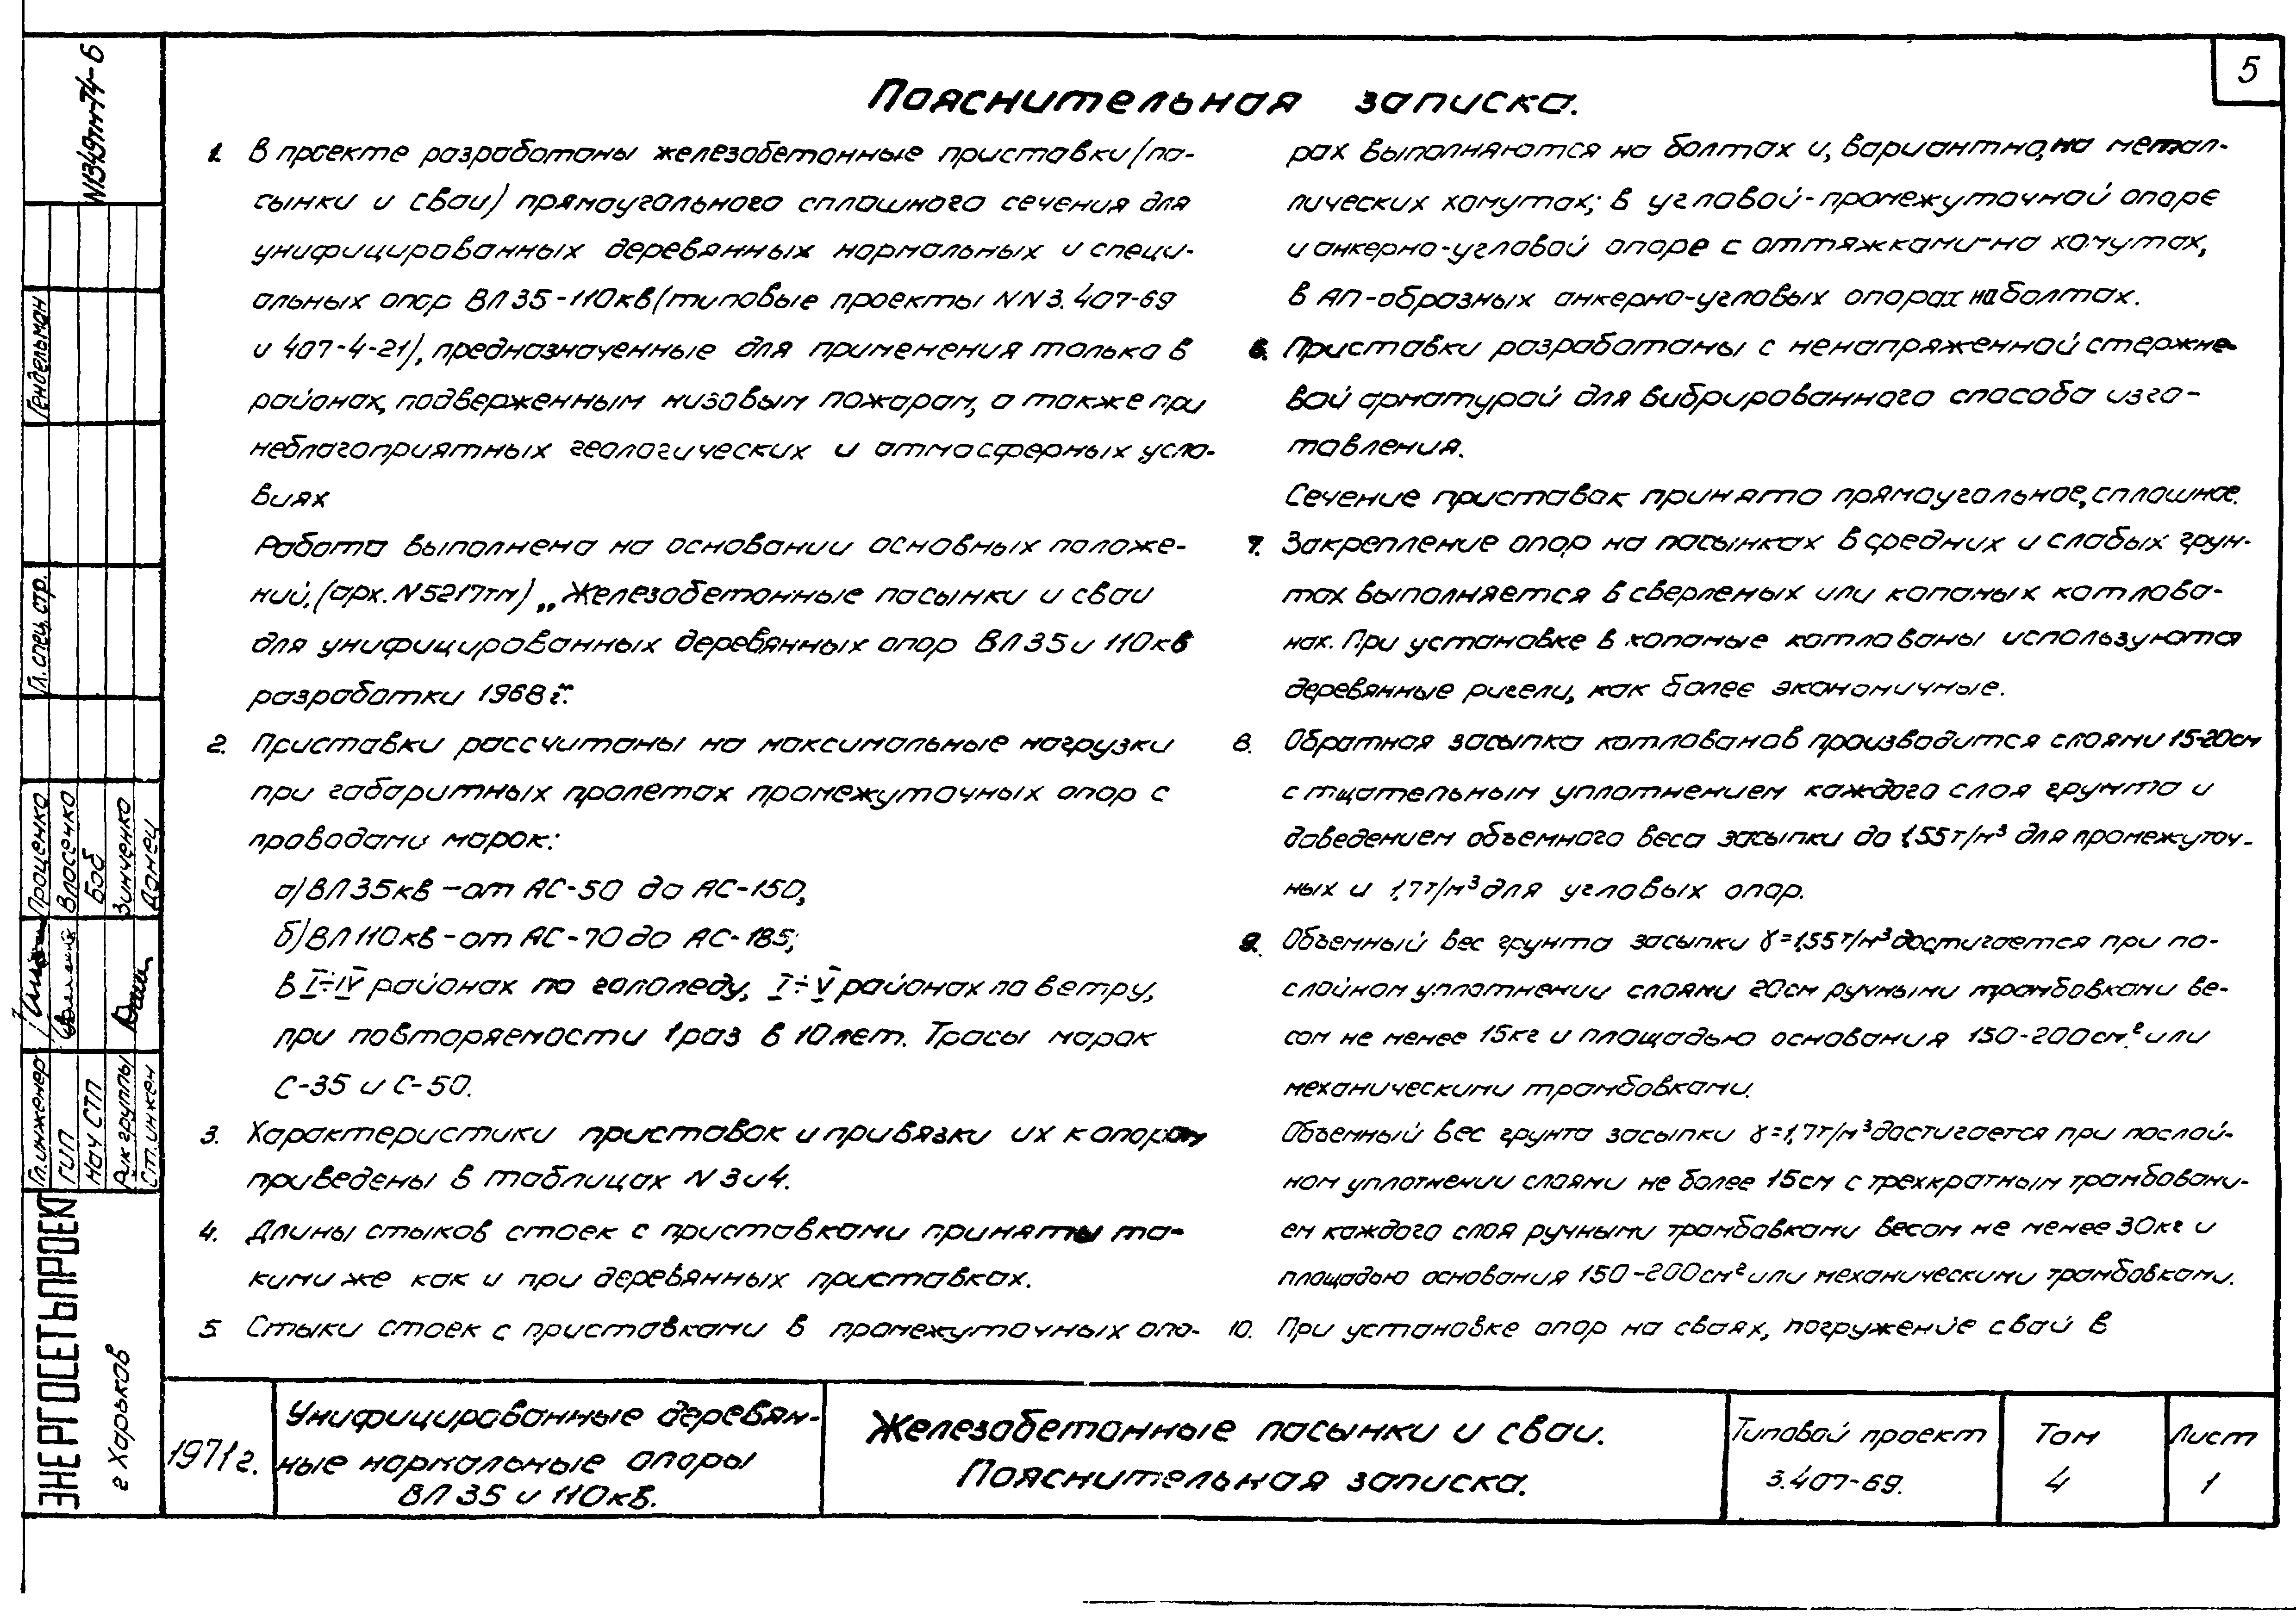 5
Пояснительная записка.
1. В проекте разработаны железобетонные приставки (па-
сынки и сваи) прямоугольного сплошного сечения для
унифицированных деревянных нормальных и специ-
альных опор ВЛ 35-110кв (типовые проекты NN 3.407-69
и 407-4-21), предназначенные для применения только в
районах, подверженным низовым пожарам, а также при
неблагоприятных геологических и атмосферных усло-
виях
Работа выполнена на основании основных положе-
ний, (арх. N 5217тм) „Железобетонные пасынки и сваи
для унифицированных деревянных опор ВЛ 35 и 110кв
разработки 1968г."
2. Приставки рассчитаны на максимальные нагрузки
при габаритных пролетах промежуточных опор с
проводами марок:
а) ВЛ 35кв - от АС-50 до АС-150,
б) ВЛ 110кв - от АС-70 до АС-185;
в I÷IV районах по гололеду, I÷V районах по ветру,
при повторяемости 1 раз в 10 лет. Тросы марок
С-35 и С-50.
3. Характеристики приставок и привязки их к опорам
приведены в таблицах N 3 и 4.
4. Длины стыков стоек с приставками приняты та-
кими же как и при деревянных приставках.
5. Стыки стоек с приставками в промежуточных опо-
рах выполняются на болтах и, вариантно, на метал-
лических хомутах; в угловой-промежуточной опоре
и анкерно-угловой опоре с оттяжками-на хомутах,
в АП-образных анкерно-угловых опорах на болтах.
6. Приставки разработаны с ненапряженной стержне-
вой арматурой для вибрированного способа изго-
товления.
Сечение приставок принято прямоугольное, сплошное.
7. Закрепление опор на пасынках в средних и слабых грун-
тах выполняется в сверленых или копаных котлова-
нах. При установке в копаные котлованы используются
деревянные ригели, как более экономичные.
8. Обратная засыпка котлованов производится слоями 15-20см
с тщательным уплотнением каждого слоя грунта и
доведением объемного веса засыпки до 1,55т/м³ для промежуточ-
ных и 1,7т/м³ для угловых опор.
9. Объемный вес грунта засыпки γ=1,55т/м³ достигается при по-
слойном уплотнении слоями 20см ручными трамбовками ве-
сом не менее 15кг и площадью основания 150-200см.² или
механическими трамбовками.
Объемный вес грунта засыпки γ=1,7т/м³ достигается при послой-
ном уплотнении слоями не более 15см с трехкратным трамбовани-
ем каждого слоя ручными трамбовками весом не менее 30кг и
площадью основания 150-200см² или механическими трамбовками.
10. При установке опор на сваях, погружение свай в
N1349тм-Т4-6
Гендельман
Гл. спец. стр.
Проценко
Власечко
Боб
Зинченко
Донец
Гл. инженер
ГИП
Нач СТП
Рук группы
Ст. инжен
ЭНЕРГОСЕТЬПРОЕКТ
г Харьков
1971г.
Унифицированные деревян-
ные нормальные опоры
ВЛ 35 и 110кв.
Железобетонные пасынки и сваи.
Пояснительная записка.
Типовой проект
3.407-69.
Том
4
Лист
1